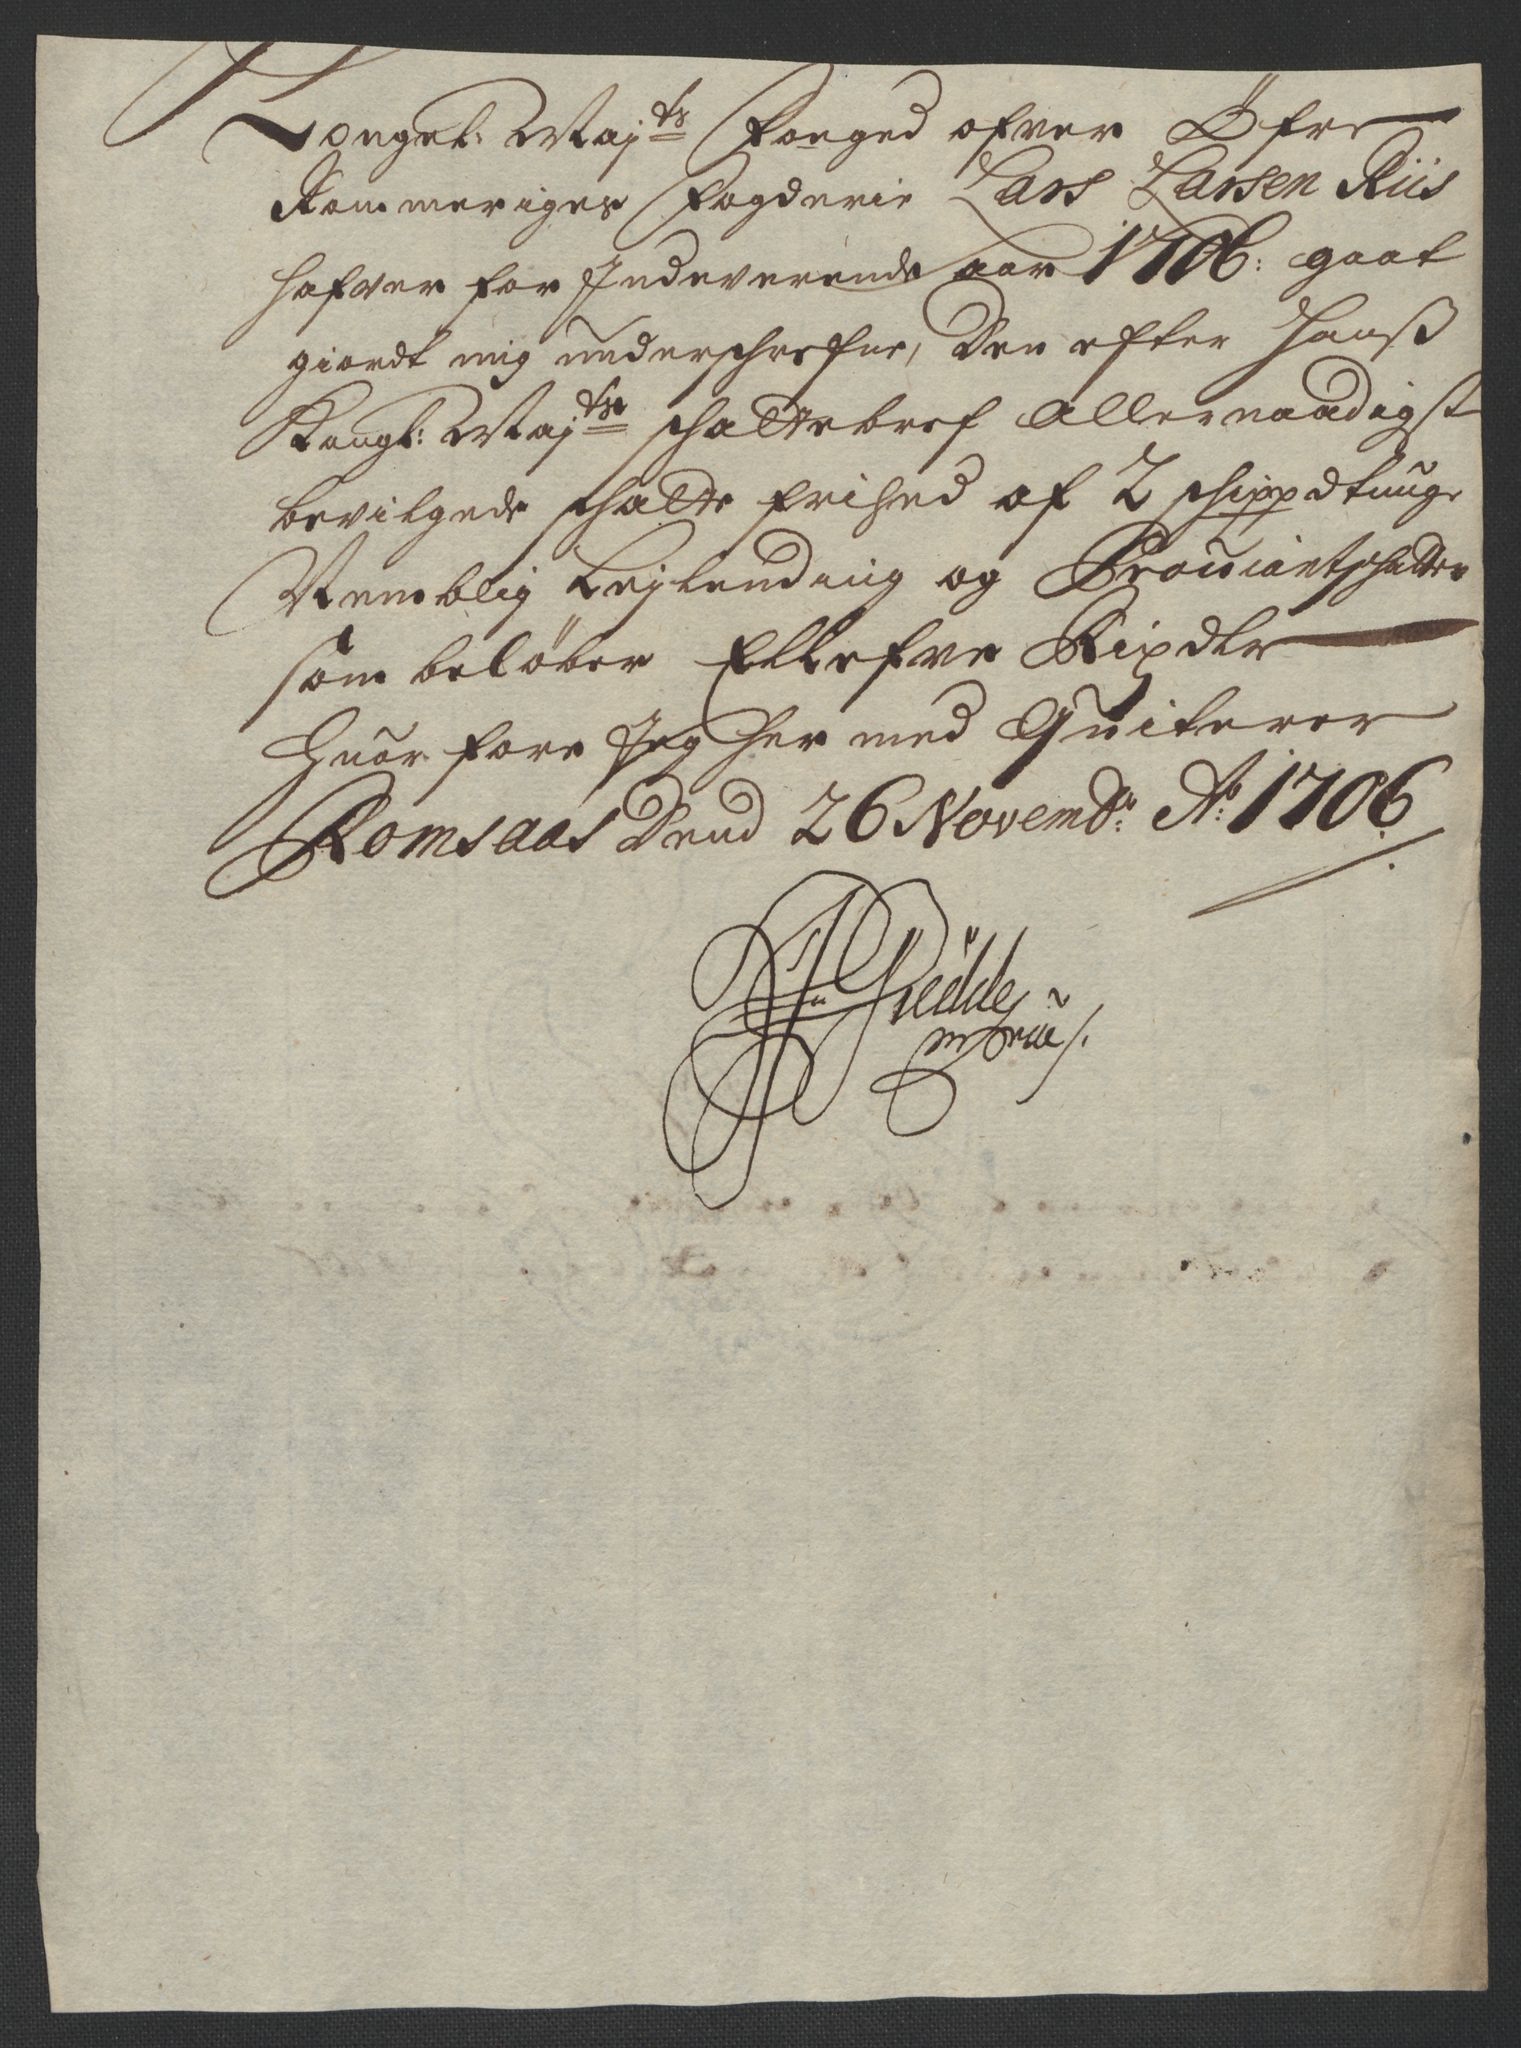 Kongel: Maj:ts Foeged ofver Öfre
Rommeriges Fogderie Lars Larsen Riis
hafver for Indeverende aar 1706: gaat
giordt mig underschrefne, Den efter Hanß
Kongl: Maj:ts schattebref Allernaadigst
bevilgede schatte frihed af 2 schippdtunge
Nemblig Leylending og Proviantschatten
som beløber Ellefve Rixdlr
Huor fore Jeg her med Quiterer
Romsaas Dend 26 Novemb: Ao: 1706